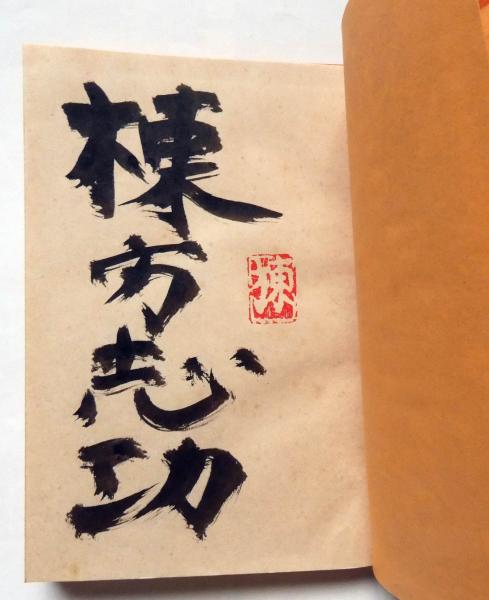 棟方志功
棟